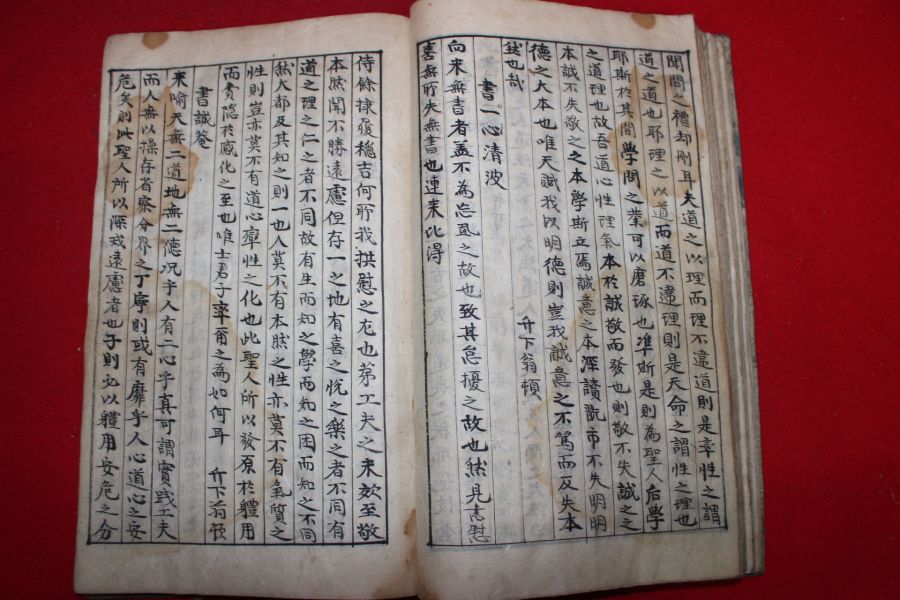 聞問之禮却刪耳夫道之以理而理不違道則是率性之謂
道之道也耶理之以道而道不違理則是天命之謂性之理也
耶斯於其間學問之業可以磨琢也準斯是則為聖人后學
之道理也故吾道心性理氣本於誠敬而發也則敬不失誠之之
本誠不失敬之之本學斯立焉誠意之本深讀既市不失明明
德之大本也唯天賦我以明德則豈我誠意之不篤而反失本
然也哉 升下翁頓
書一心清波
向来無書者盖不為忘
之故也致其怠擾之故也然見志慰
喜無聆失無書也連来比得
侍餘棣履穩吉何聆我拱慰之尤也第工夫之未效至敬
本然聞不勝遠慮但存一之地有喜之悅之樂之者不同有
道之理之仁之者不同故有生而知之學而知之困而知之不同
然大都及其知之則一也人莫不有本然之性亦莫不有氣質之
性則豈亦莫不有道心率性之化也此聖人所以發原於軆用
而費隱於感化之至也唯士君子率爾之為如何耳 升下翁頓
書誠菴
来喻天無二道地無二德况乎人有二心乎真可謂實踐工夫
而人無以操存省察分界之丁寧則或有靡乎人心道心之妄
危矣則此聖人所以深戒遠慮者也子則必以軆用安危之分